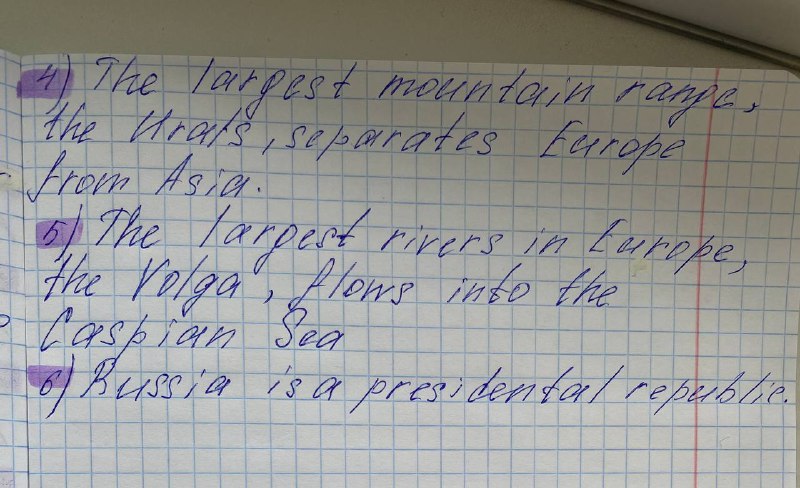 4) The largest mountain range,
the Urals, separates Europe
from Asia.
5) The largest rivers in Europe,
the Volga, flows into the
Caspian Sea
6) Russia is a presidental republic.